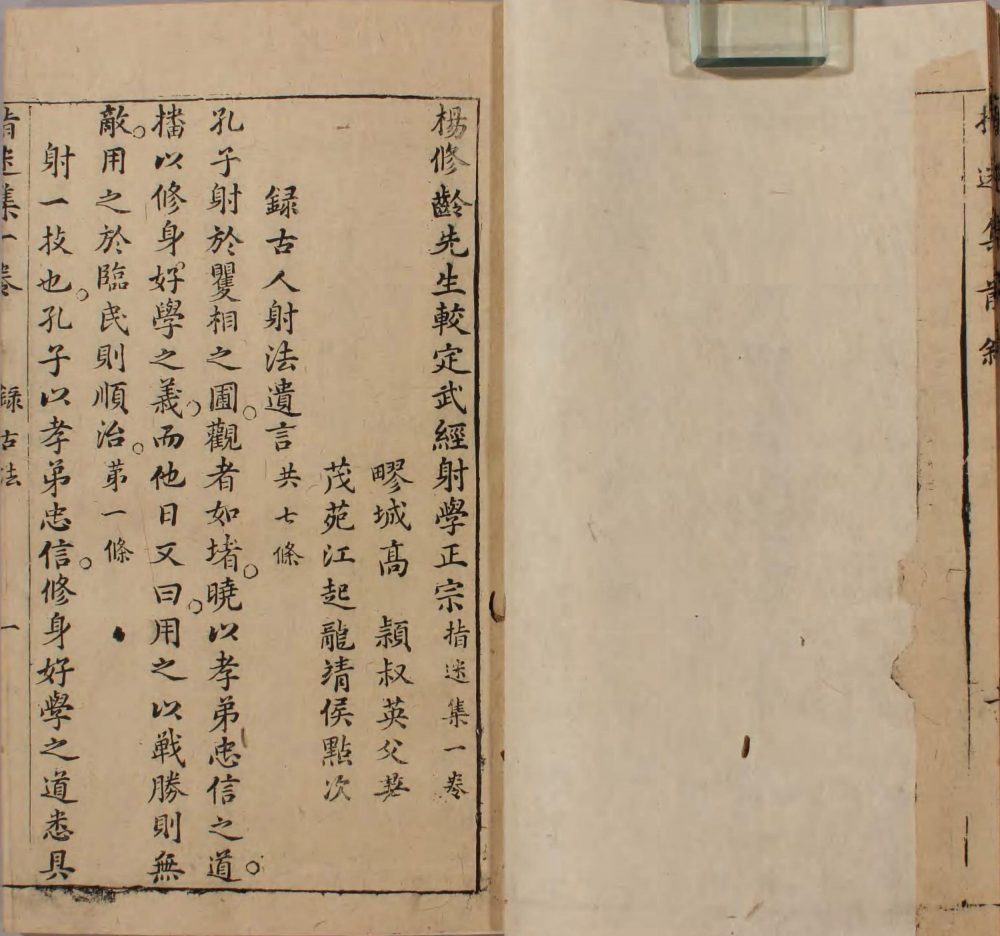 楊修齡先生較定武經射學正宗指迷集一卷
疁城高 頴叔英父
茂苑江起龍靖侯點次
錄古人射法遺言共七條
孔子射於矍相之圃觀者如堵曉以孝弟忠信之道
以修身好學之義而他日又曰用之以戰勝則無
敵用之於臨民則順治第一條
射一技也孔子以孝弟忠信修身好學之道悉具
指迷集一卷 錄古法 一